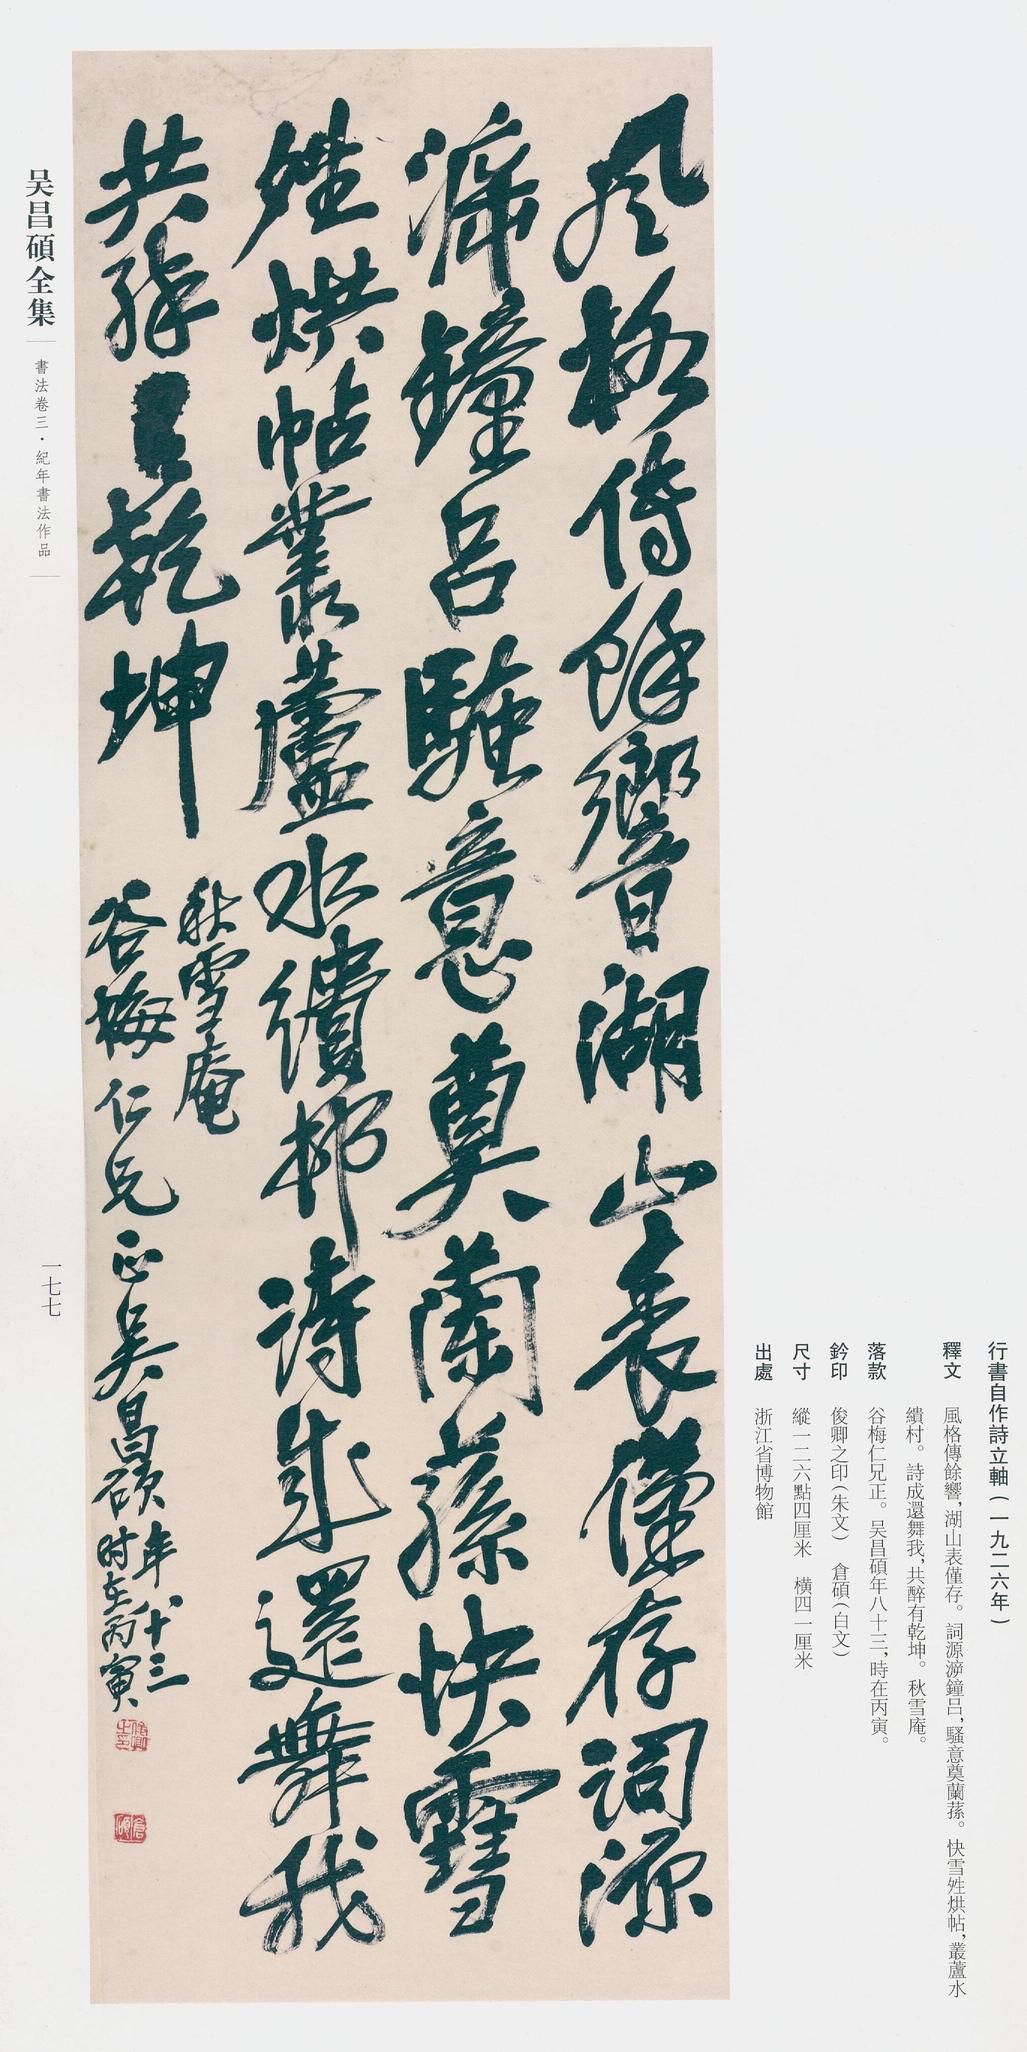 行書自作詩立軸（一九二六年）
釋文 風格傳餘響，湖山表僅存。詞源鐘吕，騷意奠蘭蓀。快雪姓烘帖，叢蘆水
繢村。詩成還舞我，共醉有乾坤。秋雪庵。
落款 谷梅仁兄正。吴昌碩年八十三，時在丙寅。
鈐印 俊卿之印（朱文） 倉碩（白文）
尺寸 縱一二六點四厘米 橫四一厘米
出處 浙江省博物館
風格傳餘響湖山表僅存詞源
鐘吕騷意奠蘭蓀快雪
姓烘帖叢蘆水繢邨詩成還舞我
共醉有乾坤
秋雪庵
谷梅仁兄正吴昌碩年八十三
时在丙寅
俊卿之印
倉碩
吴昌碩全集
書法卷三·紀年書法作品
一七七